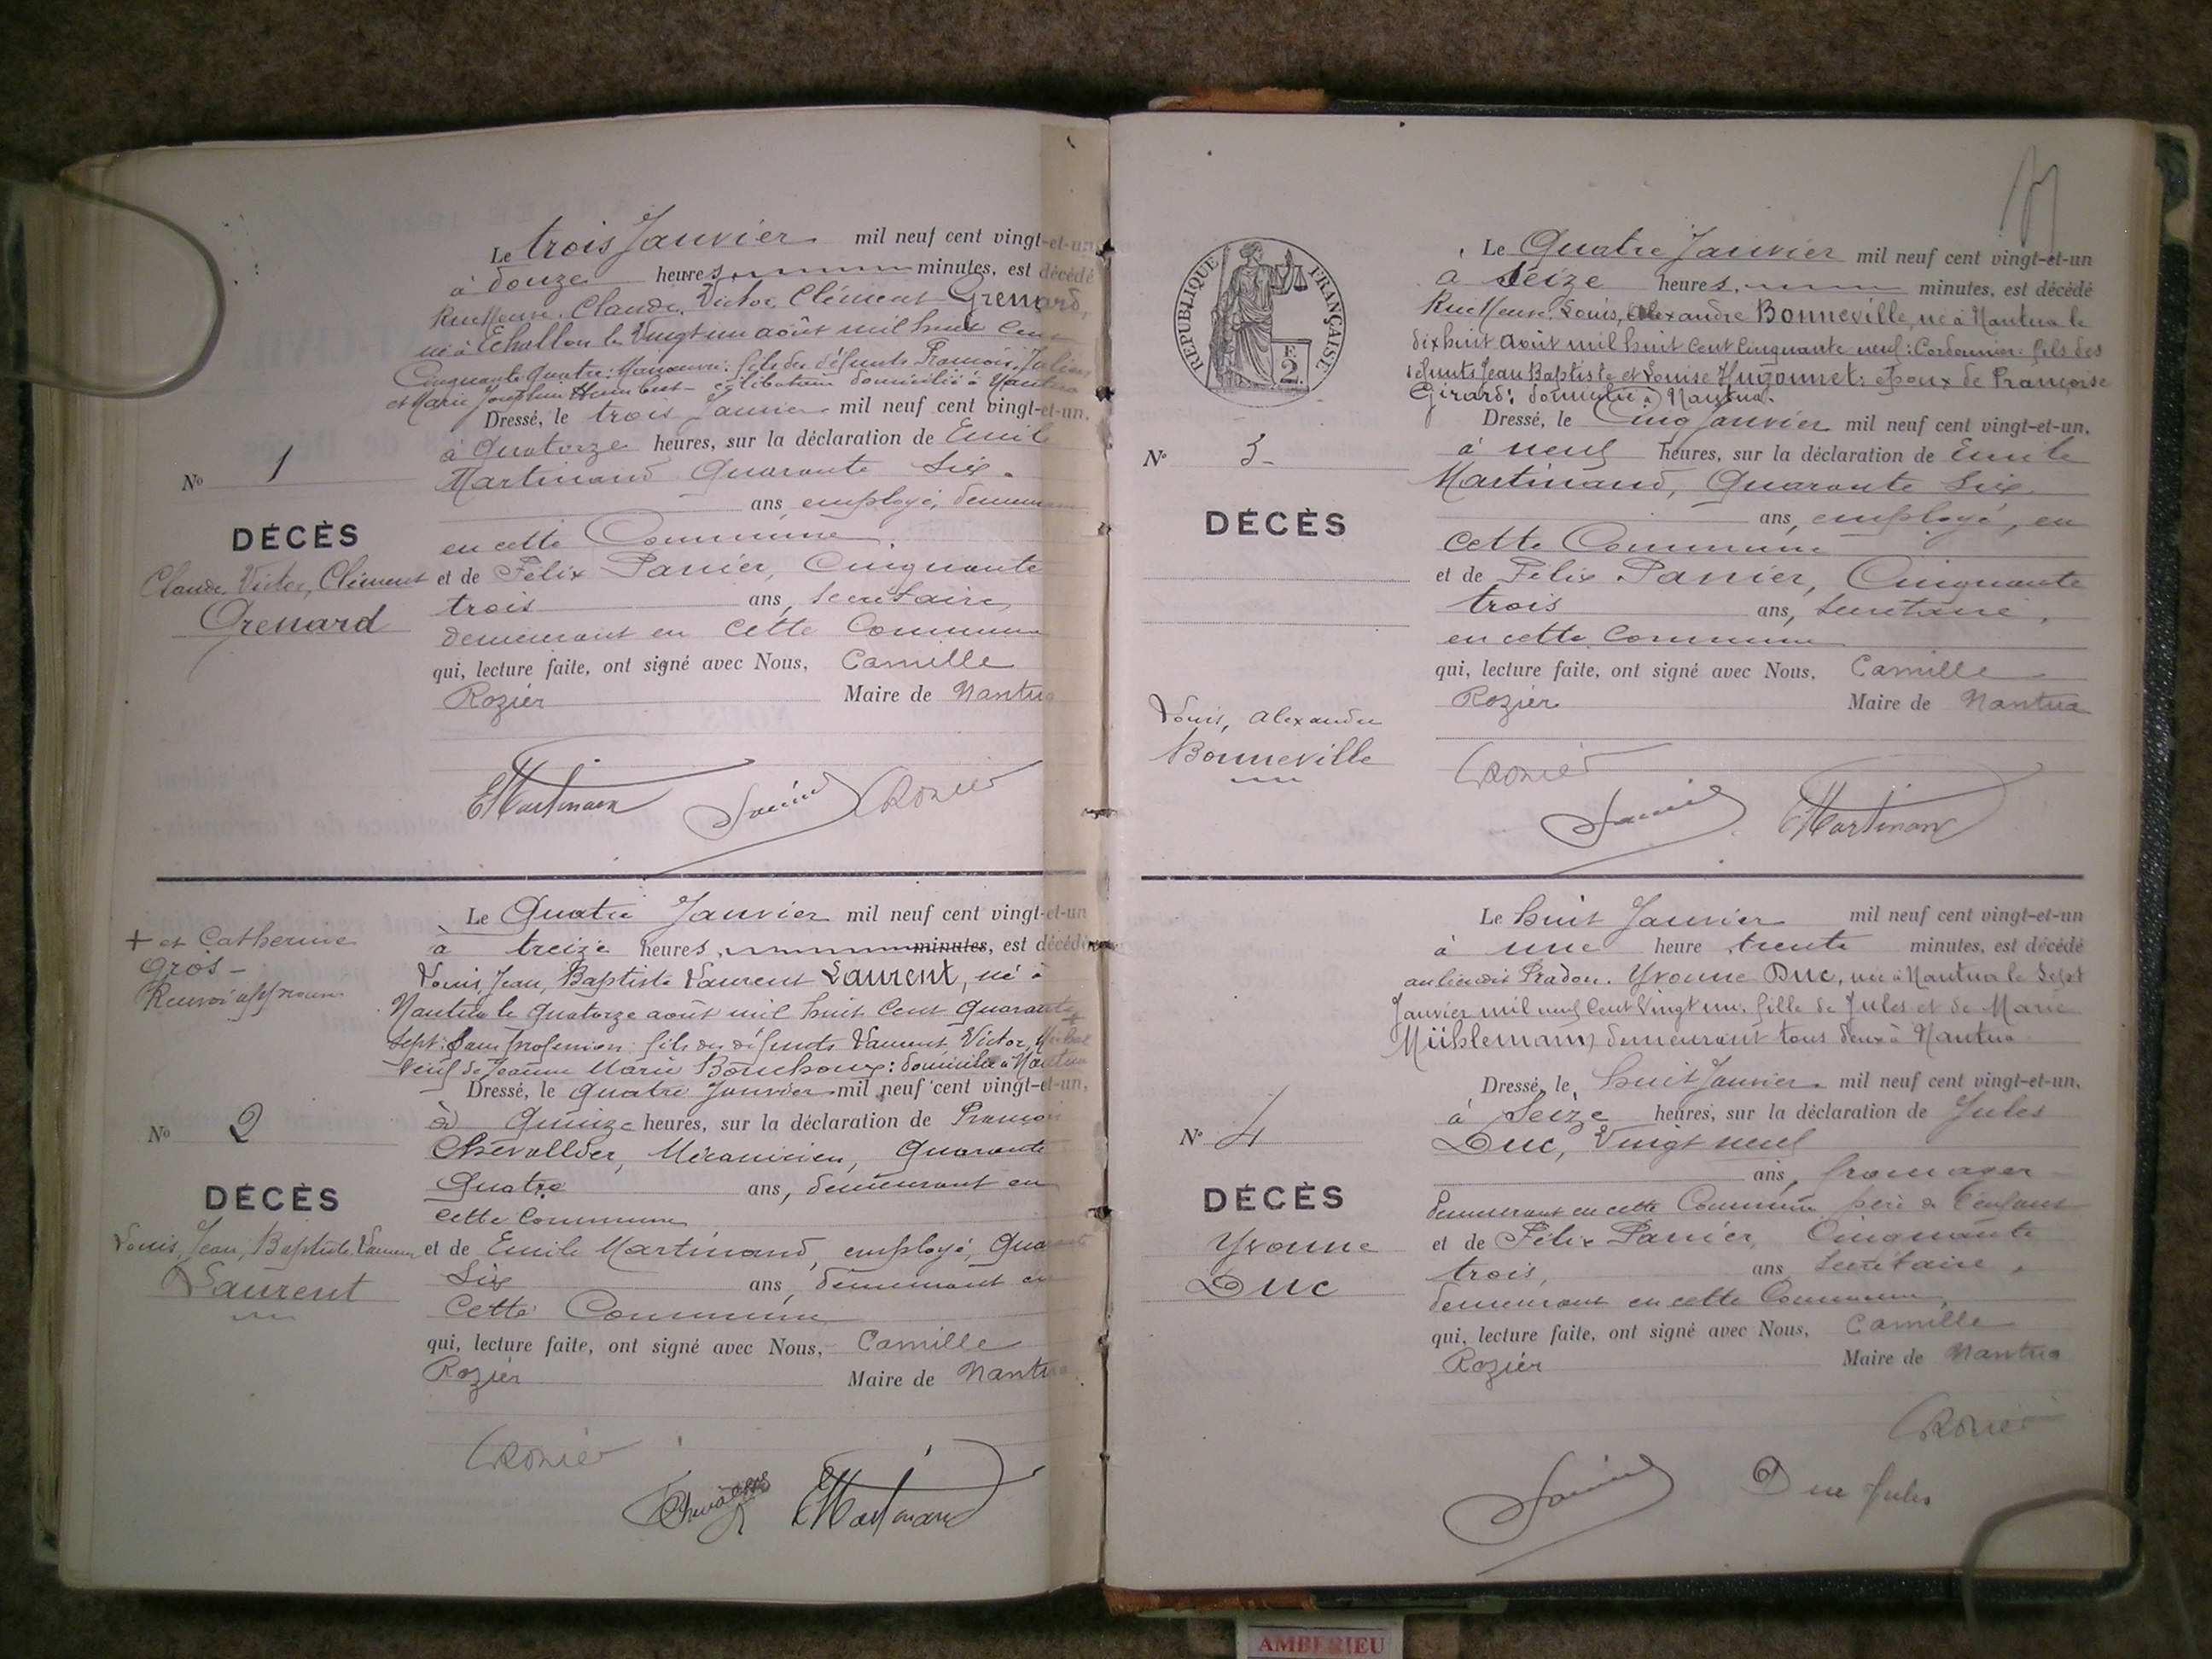 Le trois Janvier mil neuf cent vingt-et-un
à douze heures, minutes, est décédé
Rue Neuve, Claude, Victor, Clément Grenard,
né à Echallon le Vingt un août mil huit Cent
Cinquante Quatre: Manœuvre: fils des défunts François, Julien
et Marie Josephine Humbert célibataire domicilié à Nantua
Dressé, le trois Janvier mil neuf cent vingt-et-un,
à Quatorze heures, sur la déclaration de Emile
Martinand Quarante Six
ans, employé, demeurant
en cette Commune,
et de Félix Panier, Cinquante
trois ans, secrétaire,
demeurant en cette Commune
qui, lecture faite, ont signé avec Nous, Camille
Rozier Maire de Nantua
No 1
DÉCÈS
Claude, Victor, Clément
Grenard
EMartinand Panier CRozier
Le Quatre Janvier mil neuf cent vingt-et-un
à treize heures, minutes, est décédé
Louis, Jean, Baptiste Laurent Laurent, né à
Nantua le Quatorze août mil huit Cent Quarante
sept: Sans profession: fils des défunts Laurent, Victor, Michel +
Veuf de Jeanne Marie Bouchoux: domicilié à Nantua
Dressé, le Quatre Janvier mil neuf cent vingt-et-un,
à Quinze heures, sur la déclaration de François
Chevallier, Mécanicien, Quarante
Quatre ans, demeurant en
cette Commune
et de Emile Martinand, employé, Quarante
Six ans, demeurant en
Cette Commune
qui, lecture faite, ont signé avec Nous, Camille
Rozier Maire de Nantua
+ et Catherine
Gros -
Renvoi approuvé
No 2
DÉCÈS
Louis, Jean, Baptiste, Laurent
Laurent
CRozier
EMartinand
REPUBLIQUE FRANÇAISE
E
2.
Le Quatre Janvier mil neuf cent vingt-et-un
à Seize heures, minutes, est décédé
Rue Neuve, Louis, Alexandre Bonneville, né à Nantua le
dix huit Août mil huit Cent Cinquante neuf: Cordonnier: fils des
défunts Jean Baptiste et Louise Hugonnet: époux de Françoise
Girard: domicilié à Nantua.
Dressé, le Cinq Janvier mil neuf cent vingt-et-un,
à neuf heures, sur la déclaration de Emile
Martinand, Quarante Six
ans, employé, en
Cette Commune
et de Félix Panier, Cinquante
trois ans, secrétaire,
en cette Commune
qui, lecture faite, ont signé avec Nous, Camille
Rozier Maire de Nantua
No 3
DÉCÈS
Louis, Alexandre
Bonneville
CRozier
Panier EMartinand
Le huit Janvier mil neuf cent vingt-et-un
à une heure trente minutes, est décédé
au lieu dit Pradon. Yvonne Duc, née à Nantua le Sept
Janvier mil neuf Cent Vingt un. fille de Jules et de Marie
Mühlemann demeurant tous deux à Nantua
Dressé, le huit Janvier mil neuf cent vingt-et-un,
à Seize heures, sur la déclaration de Jules
Duc, Vingt neuf
ans, fromager
demeurant en cette Commune père de l'enfant
et de Félix Panier, Cinquante
trois, ans secrétaire,
demeurant en cette Commune,
qui, lecture faite, ont signé avec Nous, Camille
Rozier Maire de Nantua
No 4
DÉCÈS
Yvonne
Duc
CRozier
Panier Duc Jules
AMBERIEU